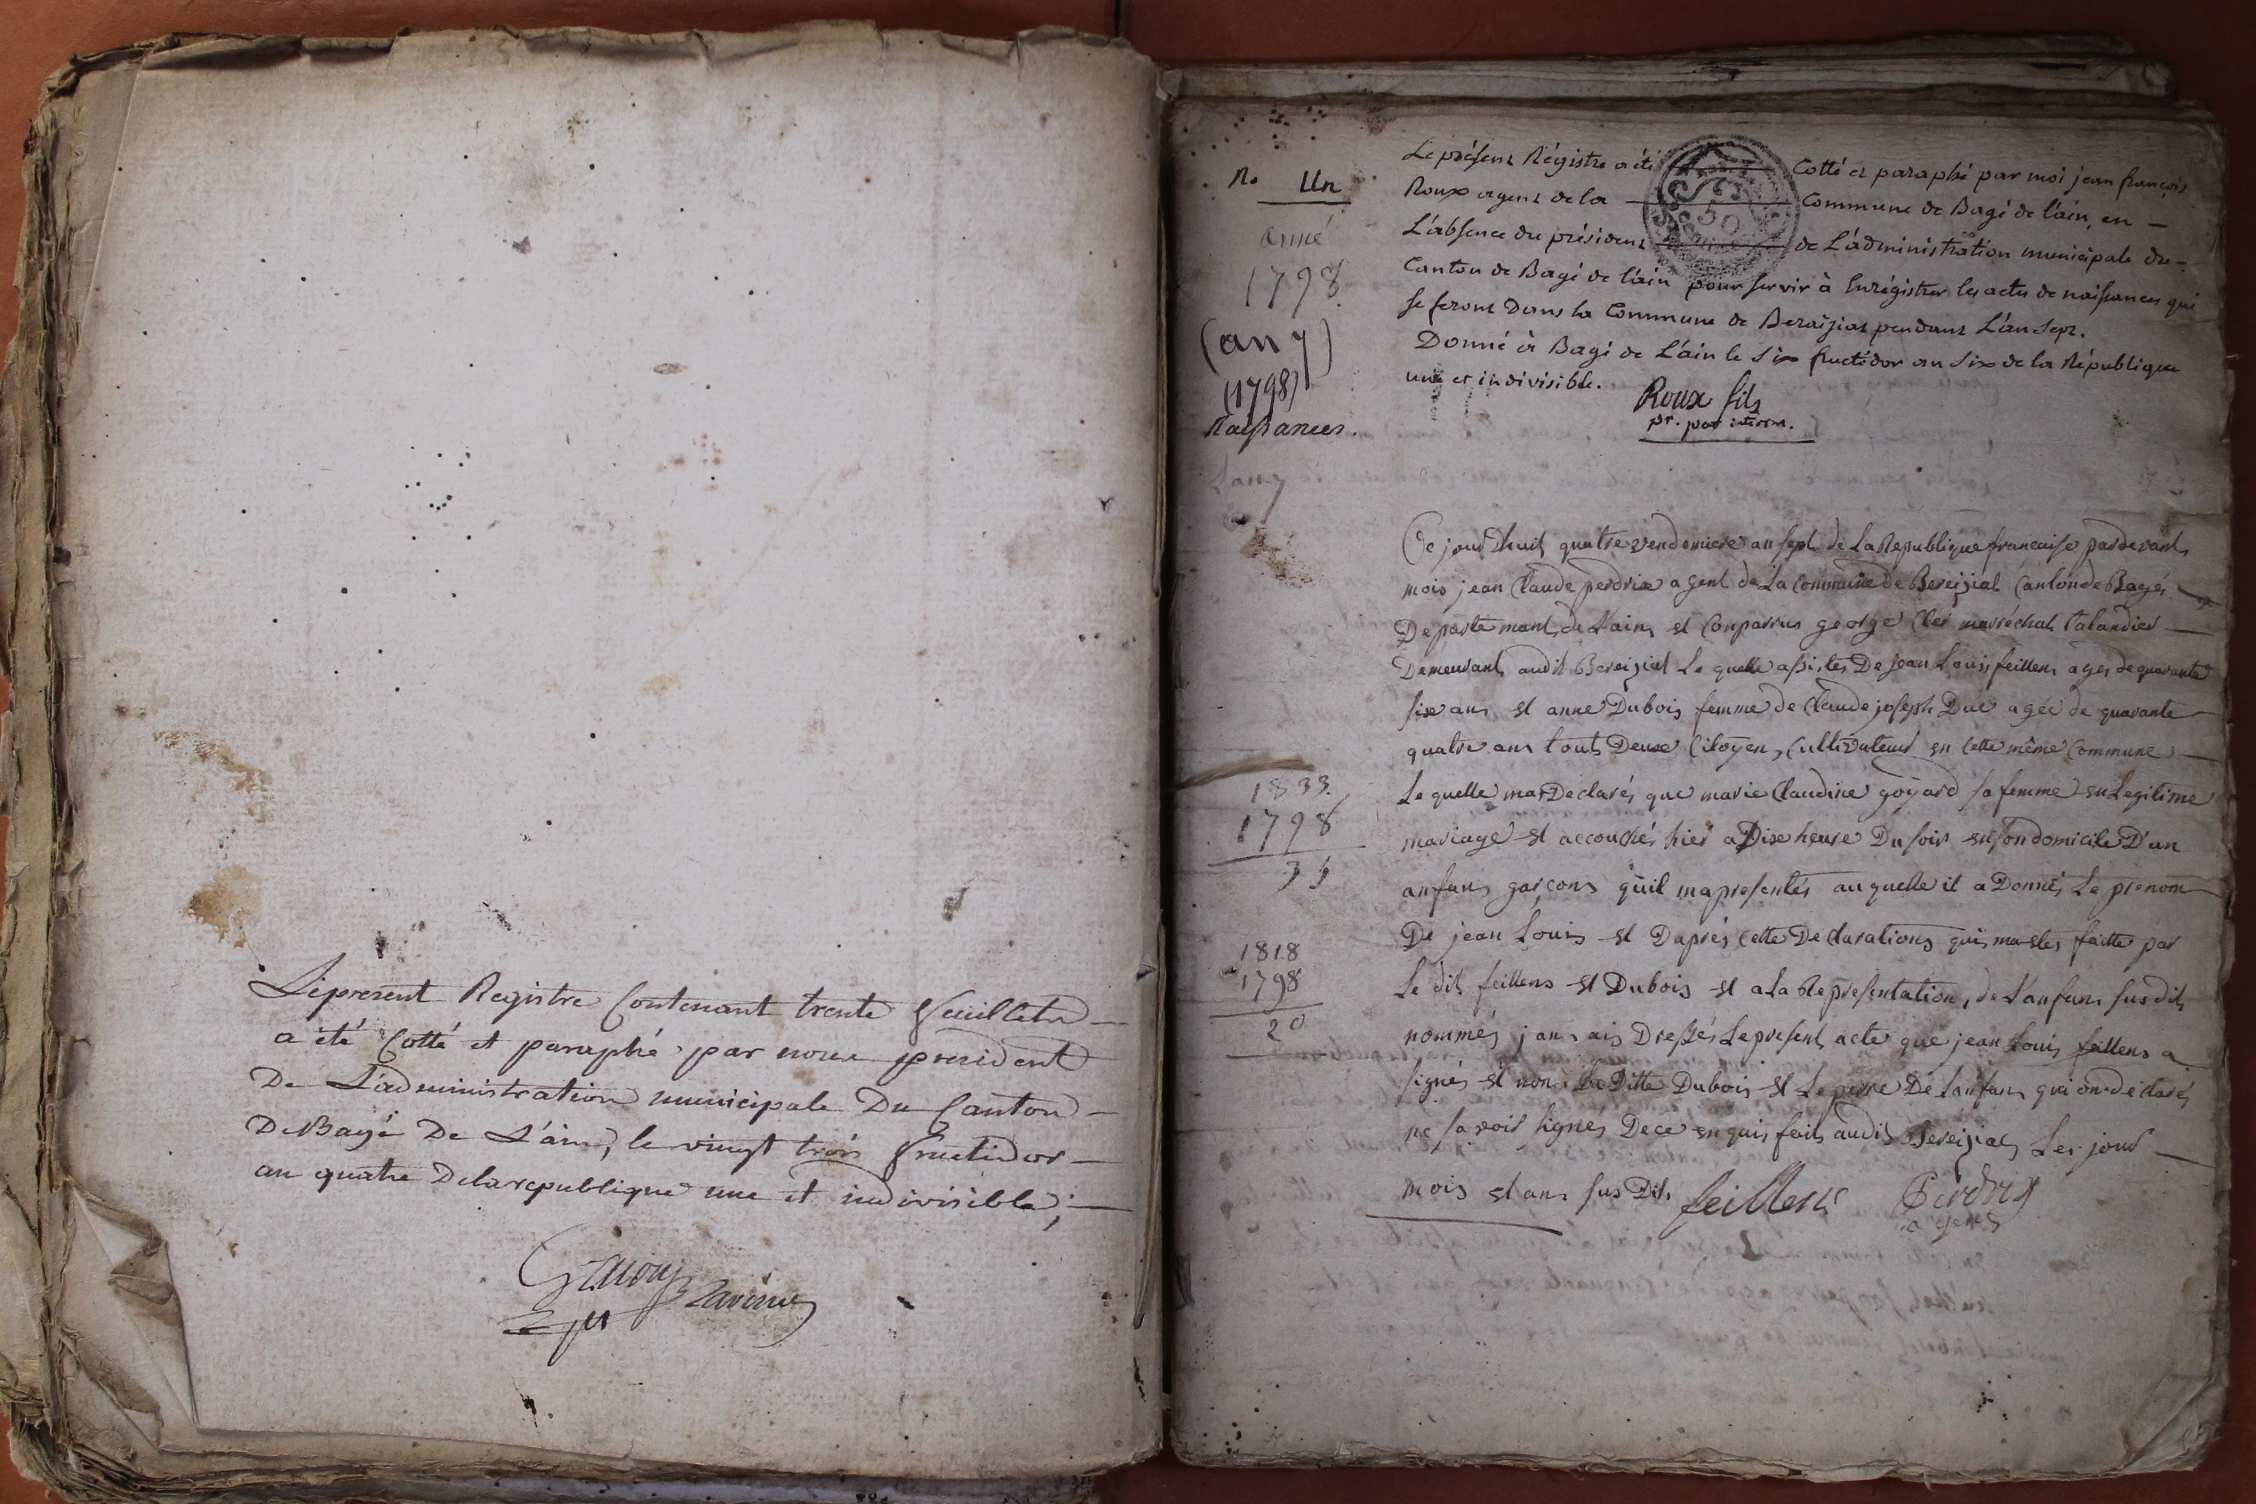 Le present Registre Contenant trente feuillets
a été Cotté et paraphé par nous president
De L'administration municipale Du Canton
De Bagé De L'ain, le vingt trois fructidor
an quatre De la republique une et indivisible;
No Un
anné
1798.
(an 7)
(1798)
Naissances.
L'an 7
Le présent Régistre a été Cotté et paraphé par moi jean françois
Roux agent de la Commune de Bagé de l'ain, en
L'absence du président de L'administration municipale du
Canton de Bagé de l'ain pour servir à Enrégistrer les actes de naissances qui
se feront Dans la Commune de Bereïziat pendant L'an sept.
Donné à Bagé de L'ain le six fructidor an six de la République
une et indivisible.
Roux fils
pr. par interim.
Ce jourdhuit quatre vendemiere an sept de La Republique francaise pardevant
mois jean Claude perdrix agent de La Commune de Bereiziat Canton de Bagés
Departemant de Lain, et Comparrus george Cler maréchal talandier
Demeurant audit Bereiziat Le quelle assistes De jean Louis feillens ages de quarante
six ans et anne Dubois femme de Claude joseph Duc agée de quarante
quatre ans tout Deux Citoyen, Cultivateur en Cette même Commune
Le quelle ma Declarés que marie Claudine goyard sa femme en Legitime
mariage et accouchés hier a Dix heure Du soir en son domicile D'un
anfans garcons quil ma presentés au quelle il a Donnés Le prenom
De jean Louis et Daprés Cette Declarations quis ma etes faitte par
Le dit feillens et Dubois et a La Representation, de L'anfans susdit
nommés jans ais Dressés Le present acte que jean Louis feillens a
signés et non La Ditte Dubois et Le perre De Lanfans qui on declarés
ne savoir signés De ce enquis fait audit Bereiziat Les jour
mois et ans sus Dit feillens Perdrix
agent
1833.
1798
35
1818
1798
20